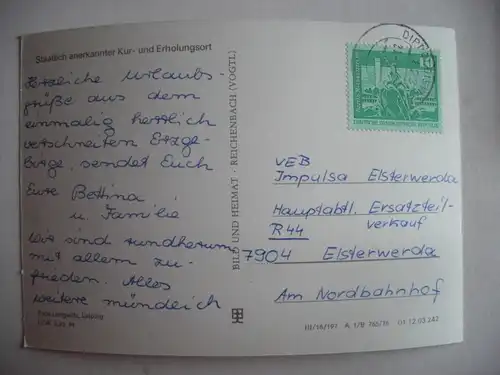 Staatlich anerkannter Kur- und Erholungsort
Herzliche Urlaubs-
grüße aus dem
einmalig herrlich
verschneiten Erzge-
birge, sendet Euch
Eure Bettina
u. Familie
Wir sind rundherum
mit allem zu-
frieden. Alles
weitere mündlich
Foto: Leipzig
BILD UND HEIMAT · REICHENBACH (VOGTL)
DIPP
10
VEB
Impulsa Elsterwerda
Hauptabtl. Ersatzteil-
verkauf
R 44
7904 Elsterwerda
Am Nordbahnhof
III/18/197 A 1/B 765/76 01 12 03 242